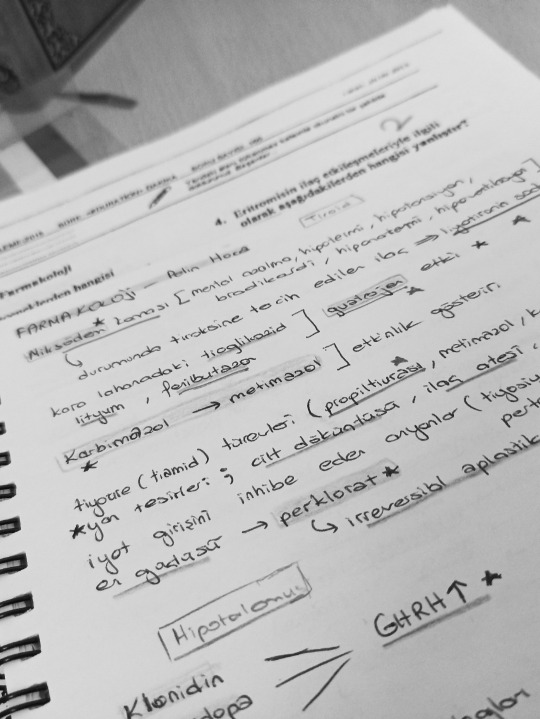 2
4. Eritromisin ilaç etkileşmeleriyle ilgili
olarak aşağıdakilerden hangisi yanlıştır?
Farmakoloji
hangisi
Tiroid
FARMAKOLOJİ - Pelin Hoca
Miksödem koması [mental azalma, hipotermi, hipotansiyon,
bradikardi, hiponatremi, hipoventilasyon]
durumunda tiroksine tercih edilen ilaç ⇒ liyotironin
kara lahanadaki tioglikozid ] guatrojen etki *
lityum, fenilbutazon
Karbimazol → metimazol ] etkinlik gösterir.
tiyoüre (tiamid) türevleri (propiltiurasil, metimazol,
*yan tesirleri; cilt döküntüsü, ilaç ateşi
iyot girişini inhibe eden anyonlar
en güçlüsü → perklorat *
↳ irreversibl aplastik
Hipotalamus
GHRH↑ *
Klonidin
dopa